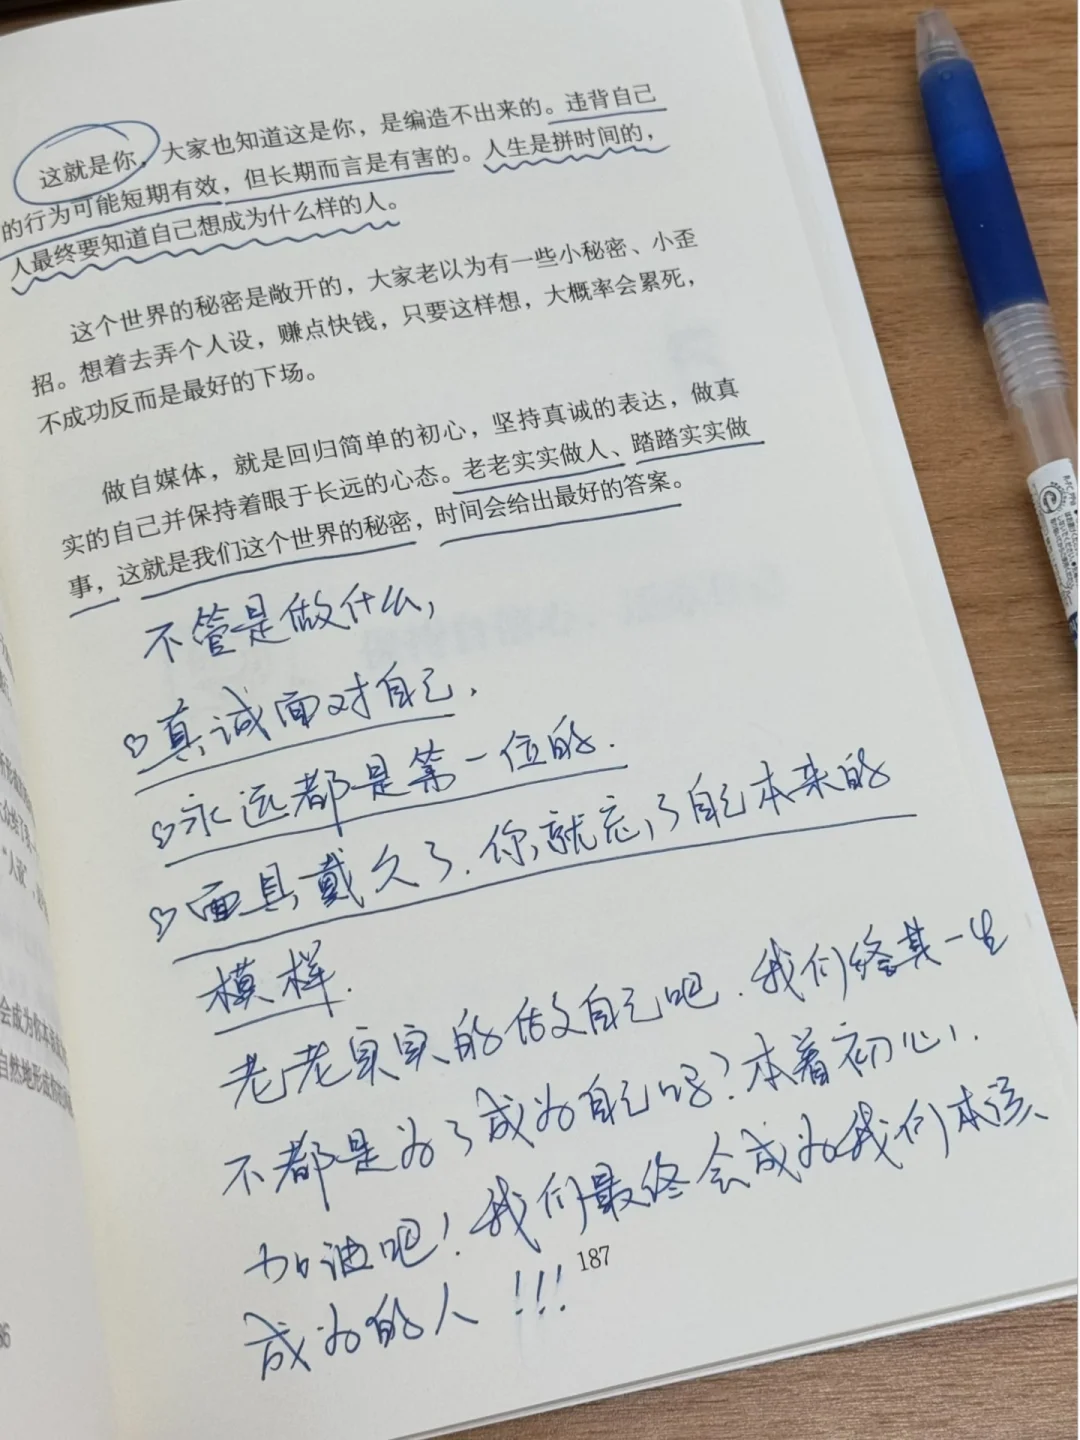 这就是你，大家也知道这是你，是编造不出来的。违背自己
的行为可能短期有效，但长期而言是有害的。人生是拼时间的，
人最终要知道自己想成为什么样的人。
这个世界的秘密是敞开的，大家老以为有一些小秘密、小歪
招。想着去弄个人设，赚点快钱，只要这样想，大概率会累死，
不成功反而是最好的下场。
做自媒体，就是回归简单的初心，坚持真诚的表达，做真
实的自己并保持着眼于长远的心态。老老实实做人、踏踏实实做
事，这就是我们这个世界的秘密，时间会给出最好的答案。
不管是做什么，
真诚面对自己，
永远都是第一位的.
面具戴久了.你就忘了自己本来的
模样.
老老实实的做自己吧.我们终其一生
不都是为了成为自己吗？本着初心.
加油吧！我们最终会成为我们本该
成为的人!!!
187
会成为你本
自然地形成